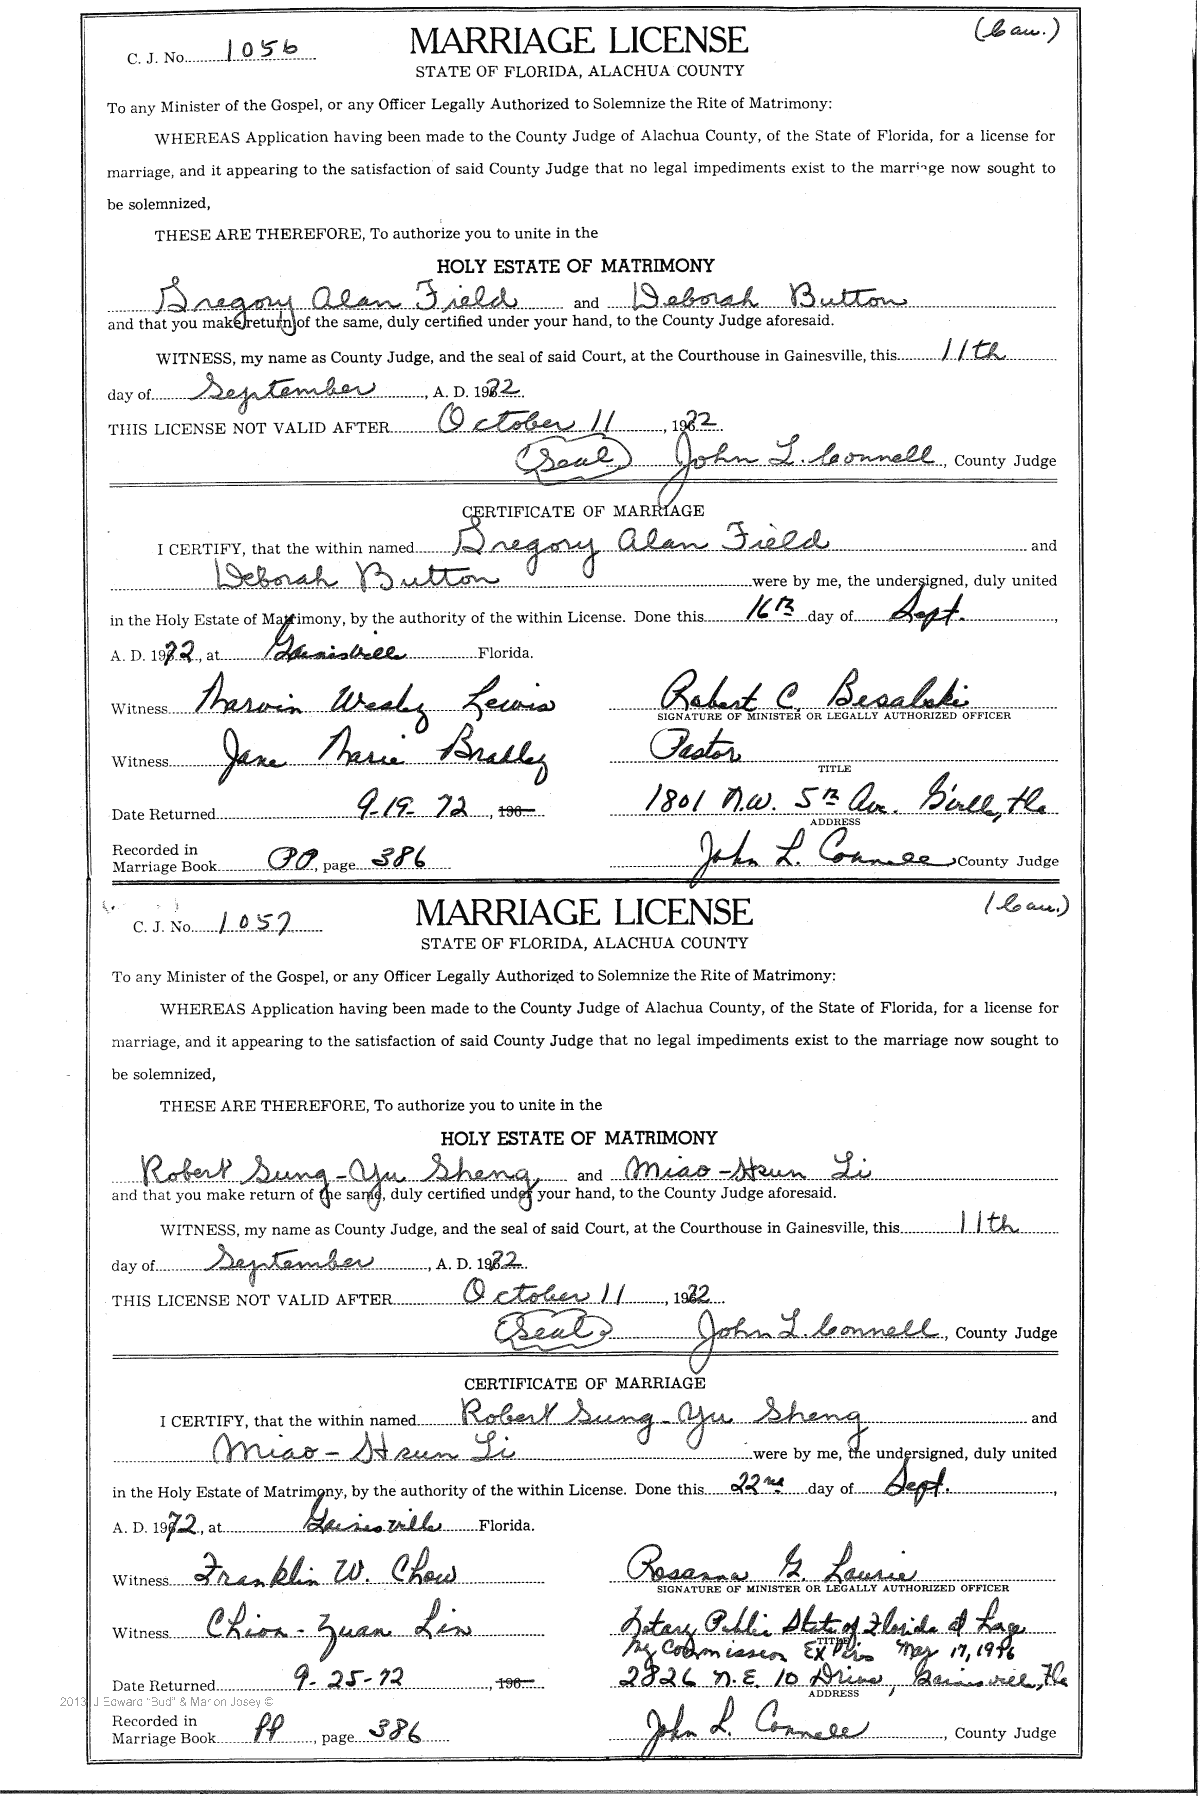 (Cau.)
C. J. No. 1056 MARRIAGE LICENSE
STATE OF FLORIDA, ALACHUA COUNTY
To any Minister of the Gospel, or any Officer Legally Authorized to Solemnize the Rite of Matrimony:
WHEREAS Application having been made to the County Judge of Alachua County, of the State of Florida, for a license for
marriage, and it appearing to the satisfaction of said County Judge that no legal impediments exist to the marriage now sought to
be solemnized,
THESE ARE THEREFORE, To authorize you to unite in the
HOLY ESTATE OF MATRIMONY
Gregory Alan Field and Deborah Button
and that you make return of the same, duly certified under your hand, to the County Judge aforesaid.
WITNESS, my name as County Judge, and the seal of said Court, at the Courthouse in Gainesville, this 11th
day of September, A. D. 1972.
THIS LICENSE NOT VALID AFTER October 11, 1972.
(Seal) John L. Connell, County Judge
CERTIFICATE OF MARRIAGE
I CERTIFY, that the within named Gregory Alan Field and
Deborah Button were by me, the undersigned, duly united
in the Holy Estate of Matrimony, by the authority of the within License. Done this 16th day of Sept.,
A. D. 1972, at Gainesville Florida.
Witness Marvin Wesley Lewis Robert C. Besalski
SIGNATURE OF MINISTER OR LEGALLY AUTHORIZED OFFICER
Witness Jane Marie Bradley Pastor
TITLE
Date Returned 9-19-72, 196 1801 N.W. 5th Av. G'ville, Fla
ADDRESS
Recorded in
Marriage Book PP, page 386 John L. Connell, County Judge
(Cau.)
C. J. No. 1057 MARRIAGE LICENSE
STATE OF FLORIDA, ALACHUA COUNTY
To any Minister of the Gospel, or any Officer Legally Authorized to Solemnize the Rite of Matrimony:
WHEREAS Application having been made to the County Judge of Alachua County, of the State of Florida, for a license for
marriage, and it appearing to the satisfaction of said County Judge that no legal impediments exist to the marriage now sought to
be solemnized,
THESE ARE THEREFORE, To authorize you to unite in the
HOLY ESTATE OF MATRIMONY
Robert Sung-Yu Sheng and Miao-Hsun Li
and that you make return of the same, duly certified under your hand, to the County Judge aforesaid.
WITNESS, my name as County Judge, and the seal of said Court, at the Courthouse in Gainesville, this 11th
day of September, A. D. 1972.
THIS LICENSE NOT VALID AFTER October 11, 1972
(Seal) John L. Connell, County Judge
CERTIFICATE OF MARRIAGE
I CERTIFY, that the within named Robert Sung-Yu Sheng and
Miao-Hsun Li were by me, the undersigned, duly united
in the Holy Estate of Matrimony, by the authority of the within License. Done this 22nd day of Sept.,
A. D. 1972, at Gainesville Florida.
Witness Franklin W. Chow Rosanna G. Laurie
SIGNATURE OF MINISTER OR LEGALLY AUTHORIZED OFFICER
Witness Chion-Yuan Lin Notary Public State of Florida at Large
TITLE
My Commission Expires May 17, 1976
Date Returned 9-25-72, 196 2826 N.E. 10 Drive, Gainesville, Fla
ADDRESS
2013 J Edward "Bud" & Marion Josey ©
Recorded in
Marriage Book PP, page 386 John L. Connell, County Judge